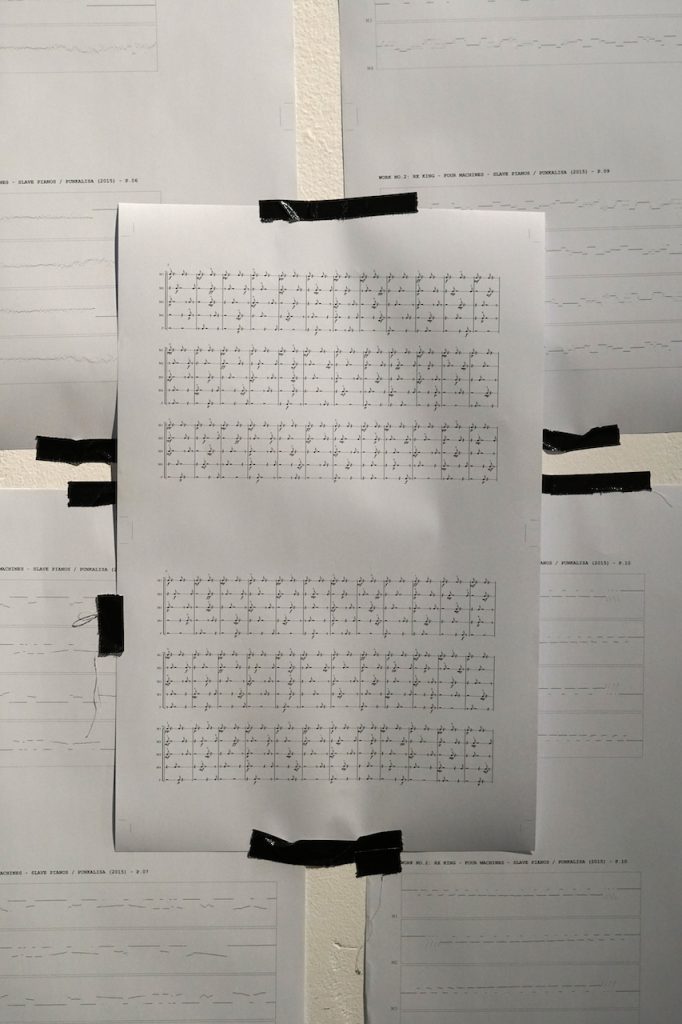 M3
M4
NES - SLAVE PIANOS / PUNKALISA (2015) - P.06
WORK NO.2: RX KING - FOUR MACHINES - SLAVE PIANOS / PUNKALISA (2015) - P.09
MACHINES - SLAVE PIANOS / PUNKALISA (2
ANOS / PUNKALISA (2015) - P.12
ACHINES - SLAVE PIANOS / PUNKALISA (2015) - P.07
WORK NO.2: RX KING - FOUR MACHINES - SLAVE PIANOS / PUNKALISA (2015) - P.10
M1
M2
M3